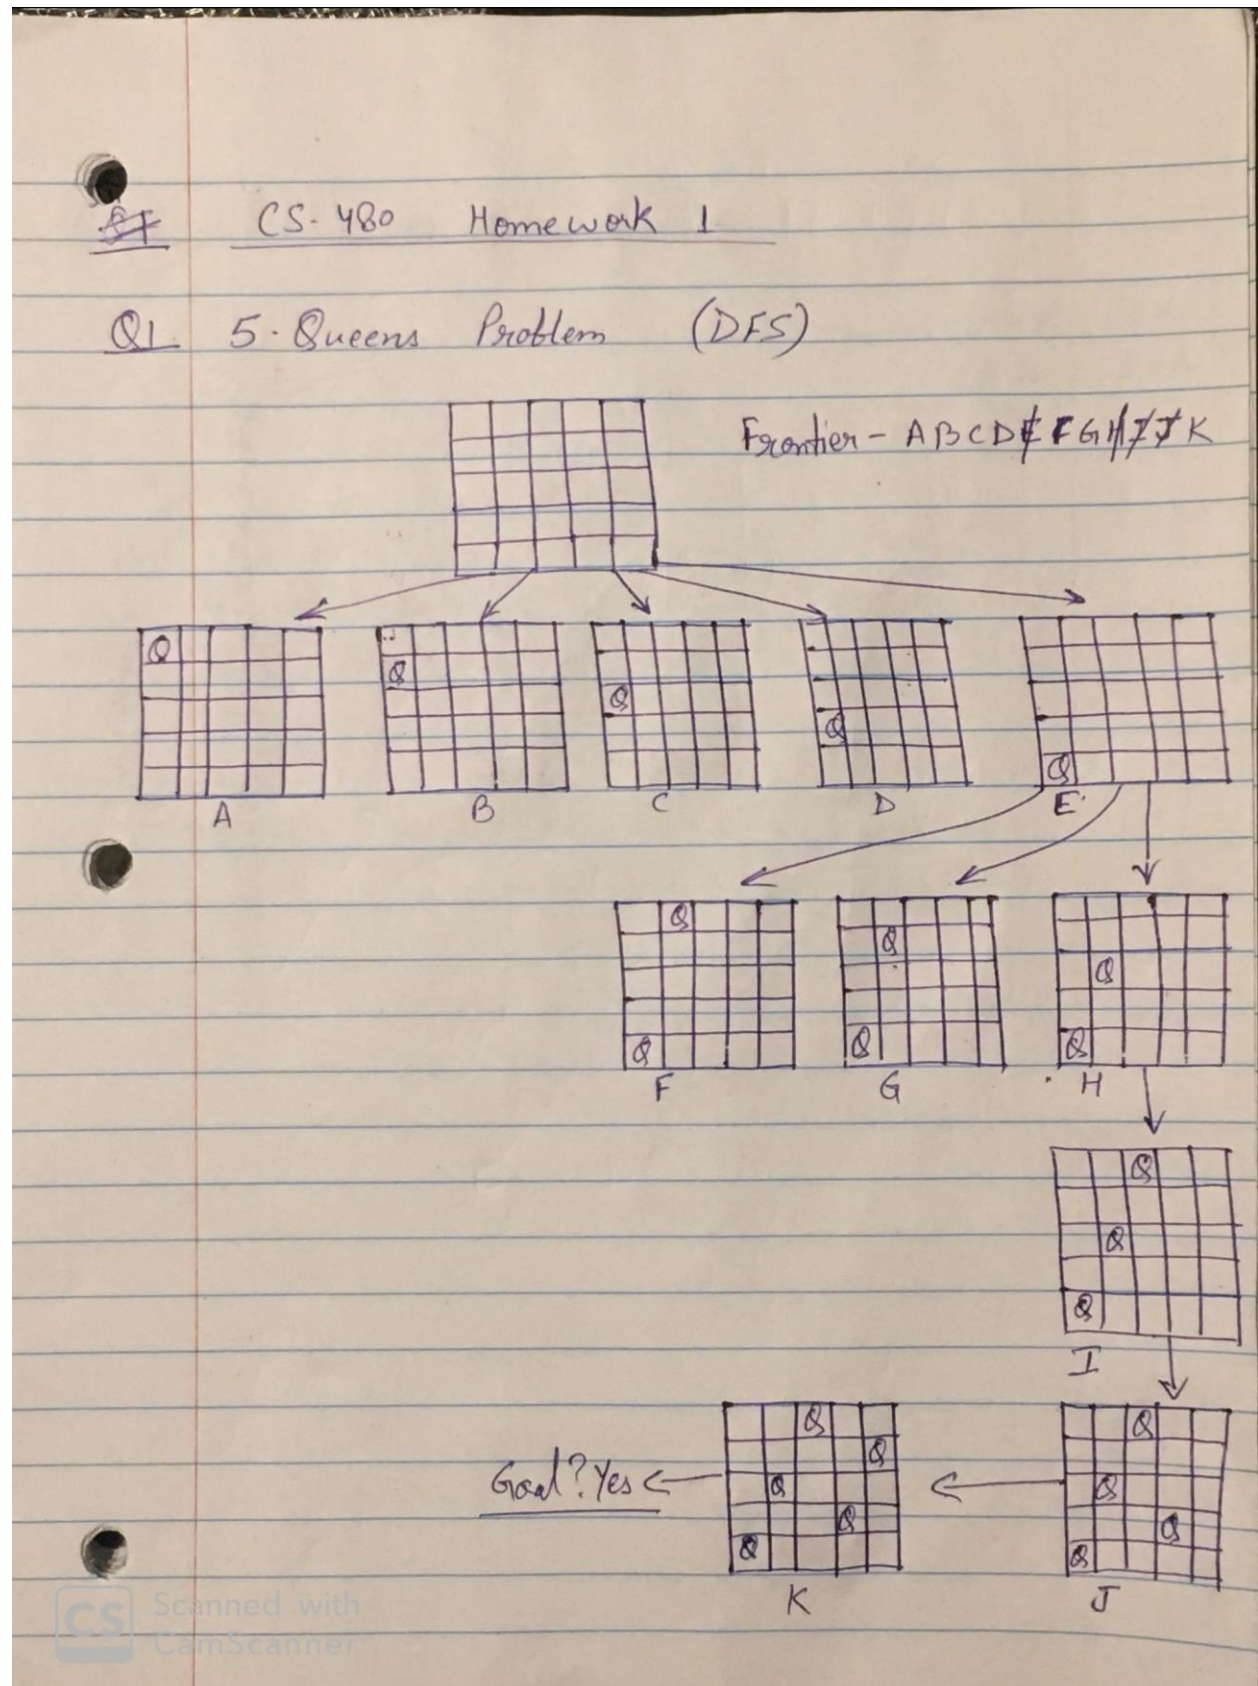 CS-480 Homework 1
Q1. 5-Queens Problem (DFS)
Frontier - A B C D E F G H I J K
Q Q Q Q Q
A B C D E
Q Q Q
Q Q Q
F G H
Q
Q
Q
I
Q Q
Q
Goal? Yes Q Q
Q Q
Q Q
K J
CS Scanned with
CamScanner